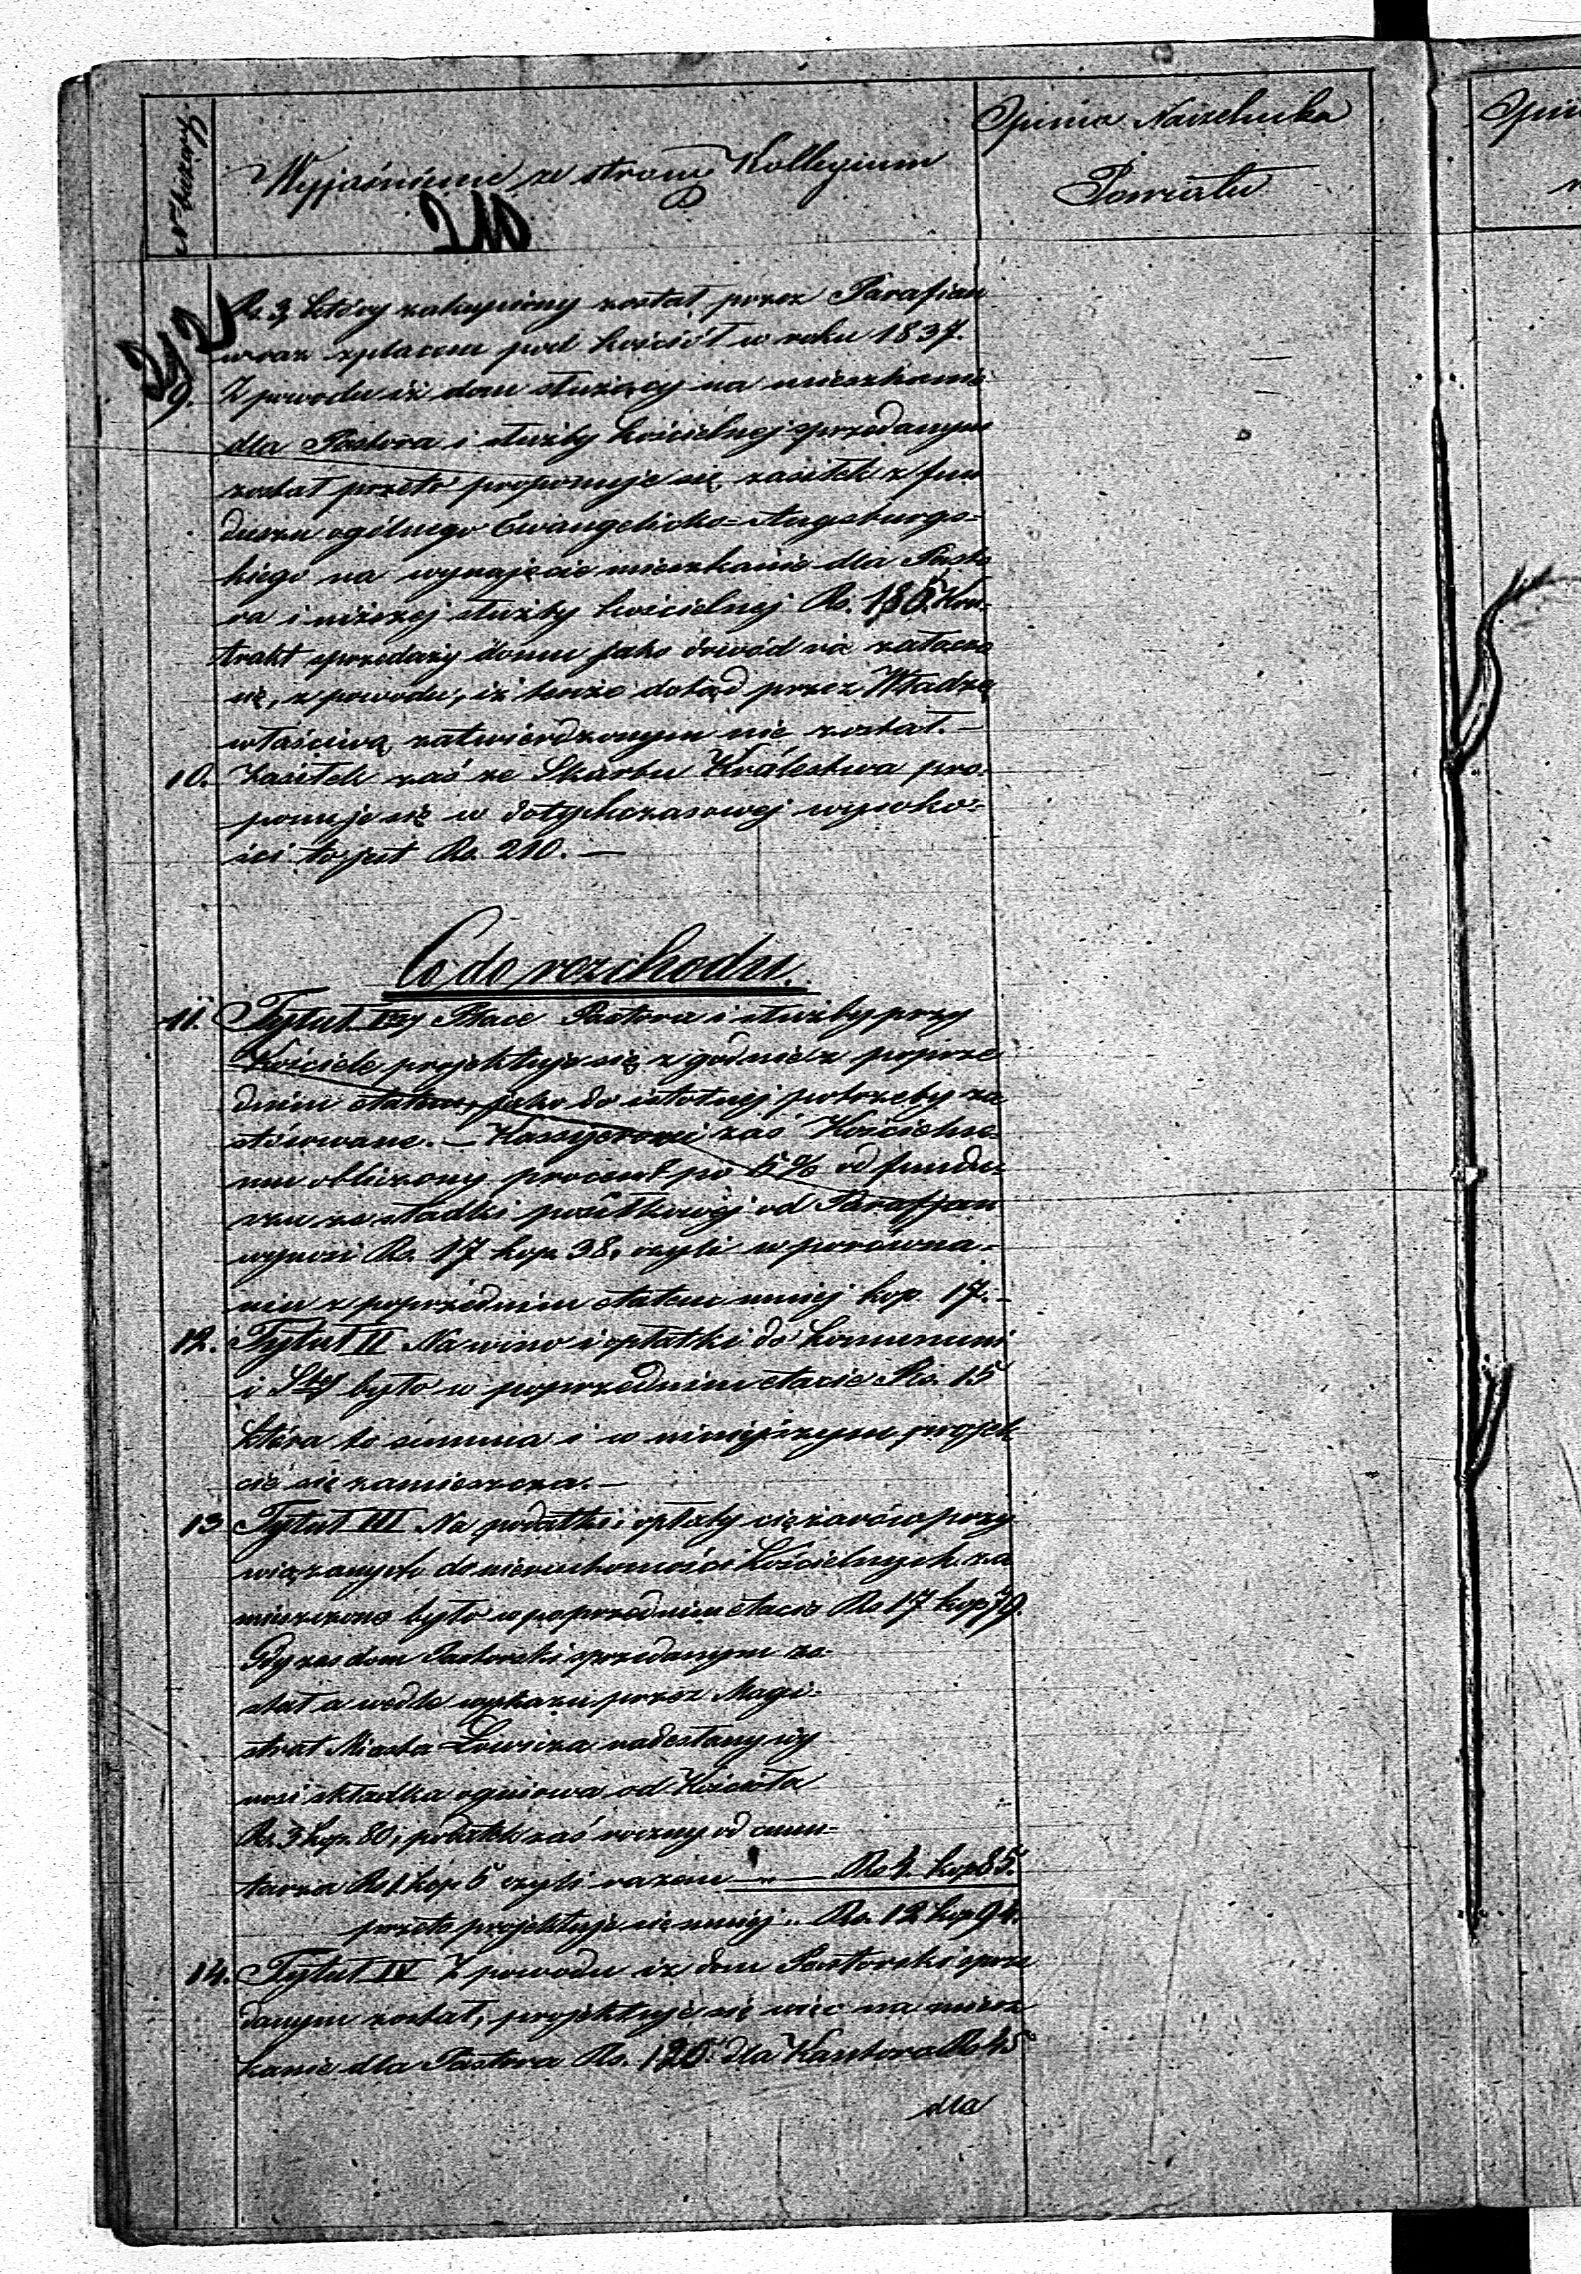 № bieżący
Wyjaśnienie ze strony Kollegium
Opinia Naczelnika
Powiatu
210
212
Rs. 3, który zakupiony został przez Parafian
wraz z placem pod kościół w roku 1837.
9. Z powodu iż dom służący na mieszkanie
dla Pastora i służby kościelnej sprzedanym
został przeto proponuje się zasiłek z fun
duszu ogólnego Ewangelicko=Augsburgs=
kiego na wynajęcie mieszkanie dla Pasto
ra i niższej służby kościelnej Rs. 185. Kon=
trakt sprzedaży domu jako dowód nie załącza
się, z powodu, iż tenże dotąd przez Władzę
właściwą zatwierdzonym nie został.—
10. Zasiłek zaś ze Skarbu Królestwa pro=
ponuje się w dotychczasowej wysoko=
ści to jest Rs. 210.—
Co do rozchodu.
11. Tytuł I szy Płace Pastora i służby przy
Kościele projektuje się zgodnie z poprze
dnim etatem, jako do istotnej potrzeby za
stósowane.— Kassyjerowi zaś Kościelne=
mu obliczony procent po 5% od fundu=
szu ze składki posiłkowéj od Parafjan
wynosi Rs. 17 kop. 38, czyli w porówna=
niu z poprzednim etatem mniej kop 17.—
12. Tytuł II Na wino i opłatki do kommuni
i Stej było w poprzednim etacie Rs. 15
która to summa i w niniejszym projek
cie się zamieszcza.—
13 Tytuł III Na podatki i opłaty ciężarów przy
wiązanych do nieruchomości kościelnych za
mieszczone było w poprzednim etacie Rs 17 kop 79.
Gdy zaś dom Pastorski sprzedanym zo=
stał a wedle wykazu przez Magi=
strat Miasta Łowicza nadesłany wy
nosi składka ogniowa od Kościoła
Rs. 3 kop. 80, podatek zaś roczny od cmen=
tarza Rs 1. kop 5 czyli razem — „ — Rs 4. kop 85.
przeto projektuje się mniej .. Rs. 12 kop 94.
14. Tytuł IV Z powodu iż dom Pastorski sprze
danym został, projektuje się więc na miesz
kanie dla Pastora Rs. 120. dla Kantora Rs 45
dla